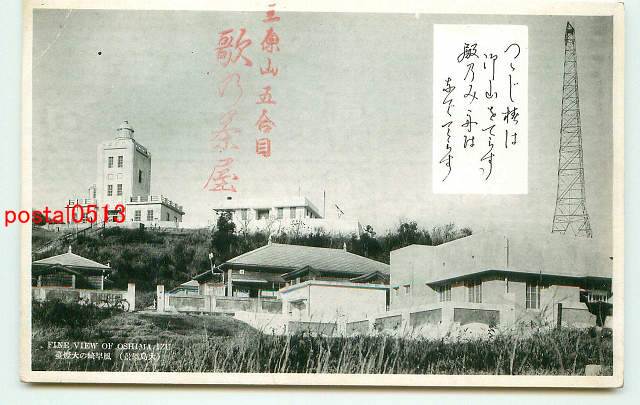 三原山五合目
歌の茶屋
つゝじ椿は
御山をてらす
殿のみ舟は
なだてらす
postal0513
FINE VIEW OF OSHIMA, IZU
(大島風景) 風早崎の大燈臺